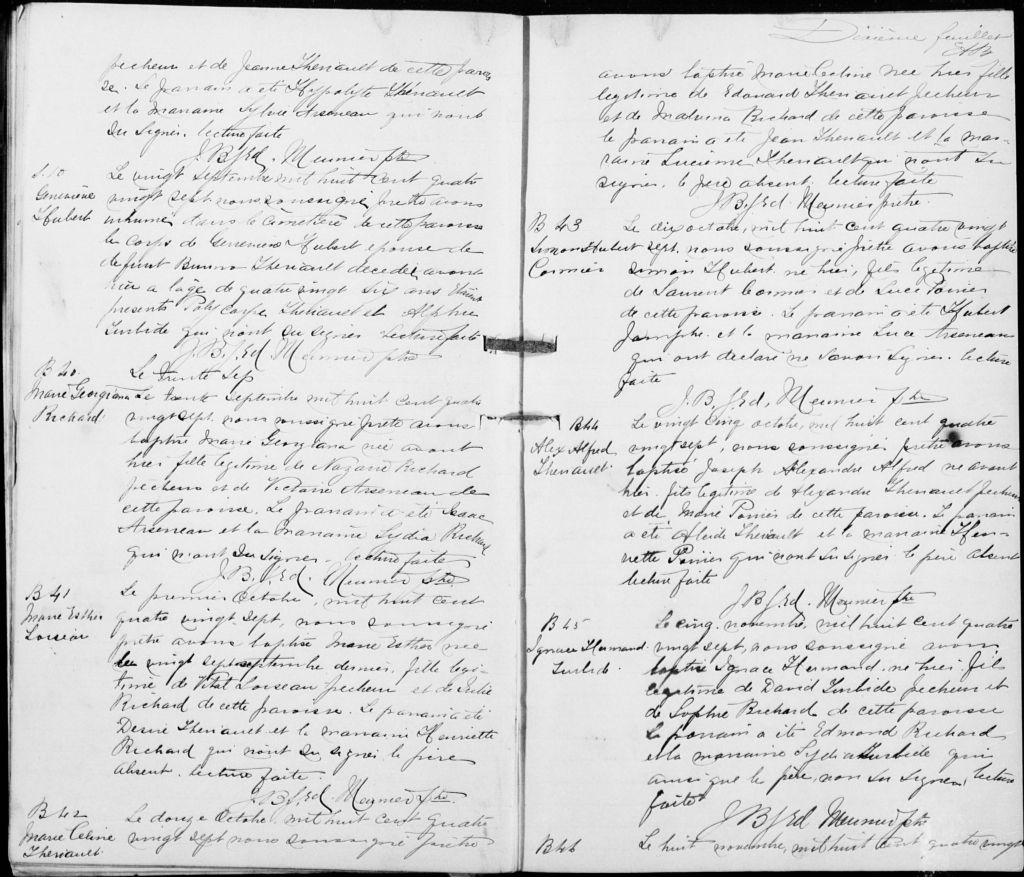 pecheur et de Jeanne Theriault de cette parois
se. Le parain a été Hypolyte Theriault
et la maraine Sylvie Arseneau qui n'ont
su signer. lecture faite
J. B. Ed. Meunier ptre
S. 10
Genevieve
Hubert
Le vingt septembre mil huit cent quatre
vingt sept nous soussigné pretre avons
inhumé dans le cimetière de cette paroisse
le corps de Genevieve Hubert epouse de
defunt Bruno Theriault decedée avant
hier a l'age de quatre vingt six ans Etaient
presents Polycarpe Theriault et Alphée
Turbide qui n'ont su signer lecture faite
J. B. Ed Meunier ptre
B 40.
Marie Georgiana
Richard
Le Trente Sep
Le trente septembre mil huit cent quatre
vingt sept. nous soussigné pretre avons
baptisé Marie Georgiana née avant
hier fille legitime de Nazaire Richard
pecheur et de Victoire Arseneau de
cette paroisse. Le parain a été Isaac
Arseneau et la maraine Lydia Richard
qui n'ont su signer. lecture faite
J. B. Ed. Meunier Ptre
B 41
Marie Esther
Loiseau
Le premier Octobre, mil huit cent
quatre vingt sept, nous soussigné
pretre avons baptisé Marie Esther née
le vingt sept septembre dernier, fille legi-
time de Vital Loiseau pecheur et de Julie
Richard de cette paroisse. Le parain a été
Desiré Theriault et la maraine Henriette
Richard qui n'ont su signer. le père
absent. lecture faite.
J. B. Ed. Meunier Ptre.
B 42
Marie Celine
Theriault
Le douze Octobre mil huit cent quatre
vingt sept nous soussigné pretre
Dixième feuillet
avons baptisé Marie Celine née hier fille
legitime de Edouard Theriault pecheur
et de Malvina Richard de cette paroisse
le parain a été Jean Theriault et la ma-
raine Lucienne Theriault qui n'ont su
signer, le père absent. lecture faite
J. B. Ed. Meunier ptre.
B 43
Simon Hubert
Cormier
Le dix octobre, mil huit cent quatre vingt
sept. nous soussigné pretre avons baptisé
Simon Hubert né hier, fils legitime
de Laurent Cormier et de Luce Poirier
de cette paroisse. Le parain a été Hubert
et la maraine Luce Arseneau
qui ont declaré ne savoir signer. lecture
faite
J. B. Ed, Meunier Ptre
B 44
Alex Alfred
Theriault
Le vingt cinq octobre, mil huit cent quatre
vingt sept, nous soussigné pretre avons
baptisé Joseph Alexandre Alfred né avant
hier. fils legitime de Alexandre Theriault pecheur
et de Marie Poirier de cette paroisse. Le parain
a été Alcide Theriault et la maraine Hen-
riette Poirier qui n'ont su signer le père absent
lecture faite
J B Ed. Meunier Ptre
B 45
Ignace Hermand
Turbide
Le cinq novembre, mil huit cent quatre
vingt sept, nous soussigné avons
baptisé Ignace Hermand, né hier, fils
legitime de David Turbide pecheur et
de Sophie Richard de cette paroisse
Le parain a été Edmond Richard
et la maraine Lydia Turbide qui
ainsi que le père, n'ont su signer, lecture
faite
J B Ed Meunier ptre
B 46
Le huit novembre, mil huit cent quatre vingt